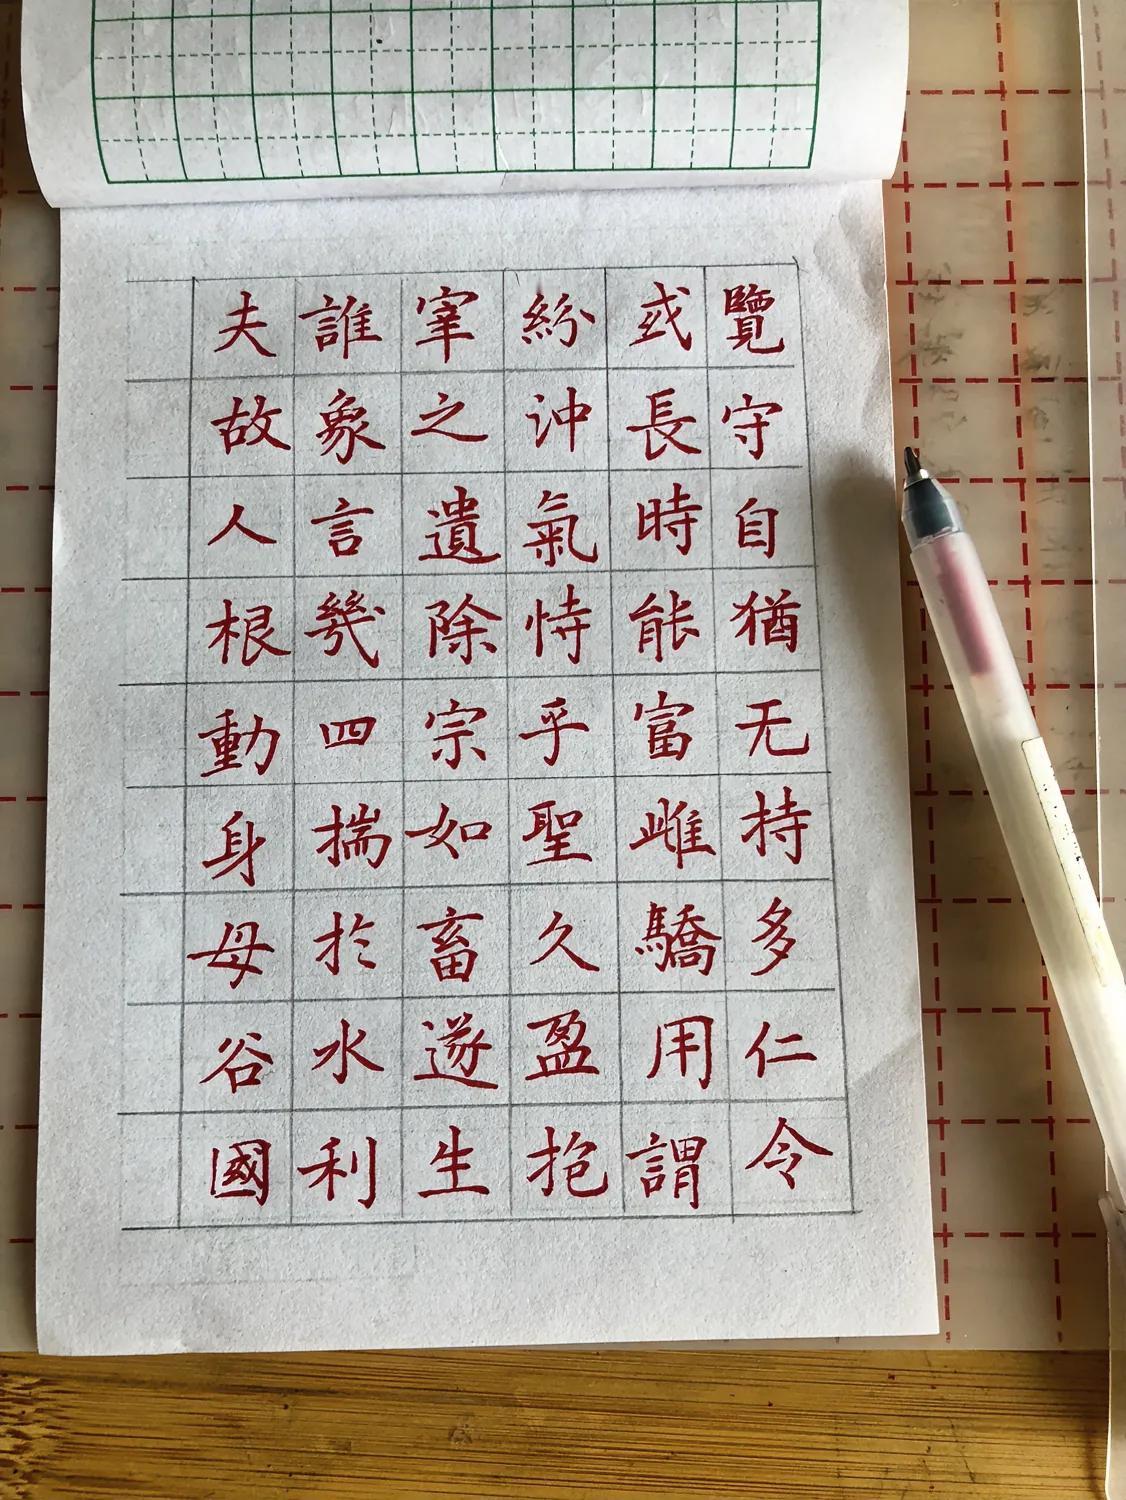 覽守自猶无持多仁令
或長時能富雌驕用謂
紛沖氣恃乎聖久盈抱
宰之遺除宗如畜遂生
誰象言幾四揣於水利
夫故人根動身母谷國